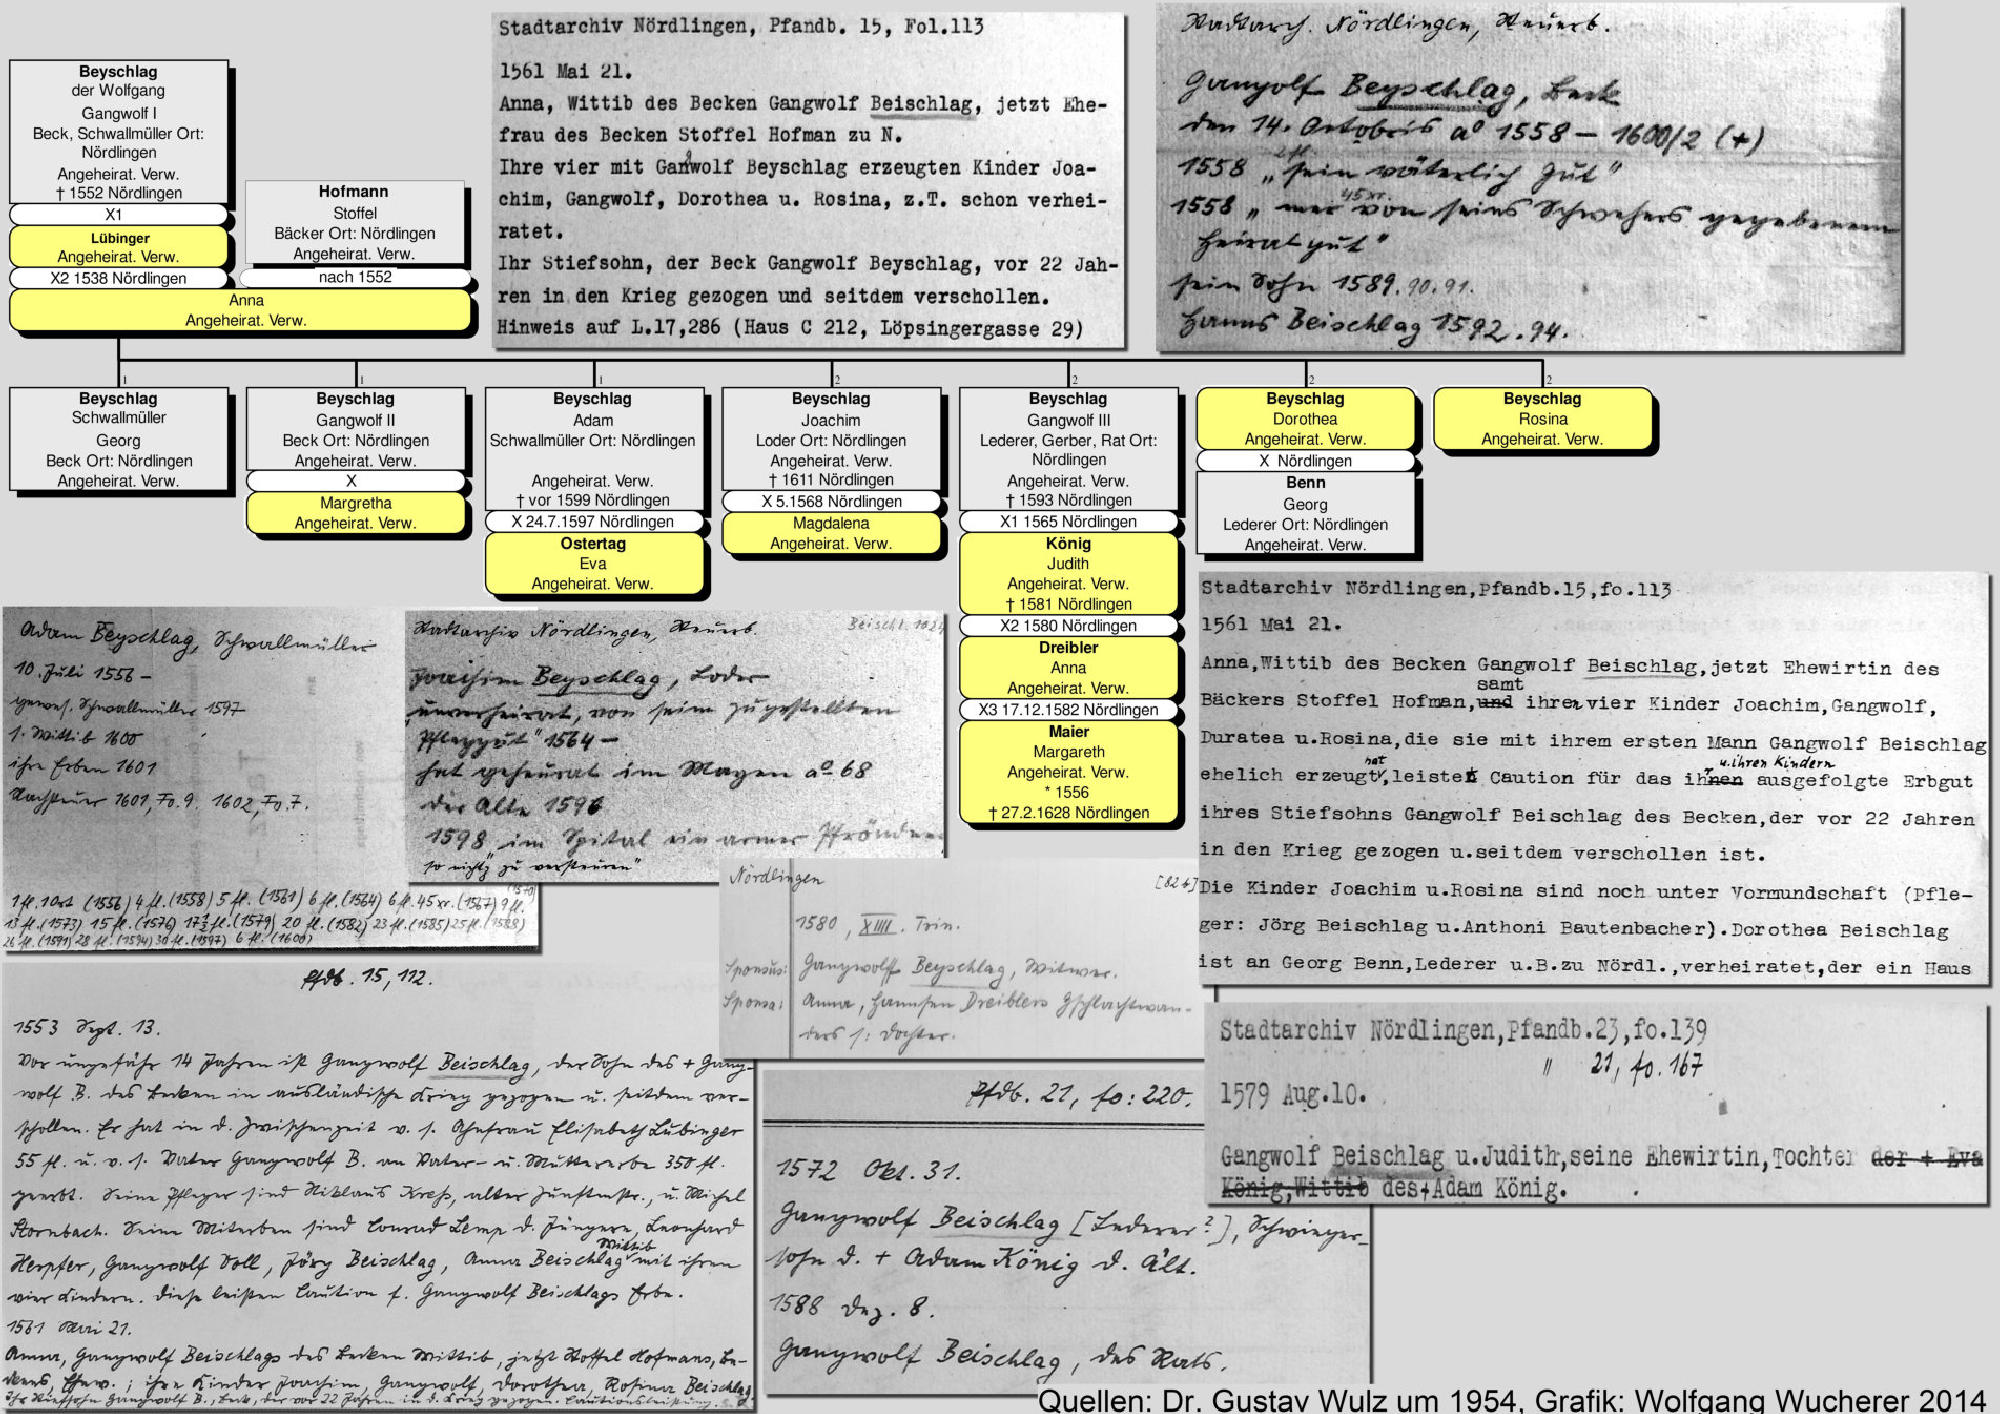 Beyschlag
der Wolfgang
Gangwolf I
Beck, Schwallmüller Ort:
Nördlingen
Angeheirat. Verw.
† 1552 Nördlingen
X1
Lübinger
Angeheirat. Verw.
X2 1538 Nördlingen
Hofmann
Stoffel
Bäcker Ort: Nördlingen
Angeheirat. Verw.
nach 1552
Anna
Angeheirat. Verw.
Stadtarchiv Nördlingen, Pfandb. 15, Fol.113
1561 Mai 21.
Anna, Wittib des Becken Gangwolf Beischlag, jetzt Ehe-
frau des Becken Stoffel Hofman zu N.
Ihre vier mit Gangwolf Beyschlag erzeugten Kinder Joa-
chim, Gangwolf, Dorothea u. Rosina, z.T. schon verhei-
ratet.
Ihr Stiefsohn, der Beck Gangwolf Beyschlag, vor 22 Jah-
ren in den Krieg gezogen und seitdem verschollen.
Hinweis auf L.17,286 (Haus C 212, Löpsingergasse 29)
Stadtarch. Nördlingen, Steuerb.
Gangolf Beyschlag, Beck
den 14. Octobris aº 1558 – 1600/2 (+)
1558 „ sein väterlich Gut“
1558 „ mer von seins Schwehers gegebenem
Heiratgut“
45 xr.
sein Sohn 1589. 90. 91.
Hanns Beischlag 1592. 94.
1
1
1
2
2
2
2
Beyschlag
Schwallmüller
Georg
Beck Ort: Nördlingen
Angeheirat. Verw.
Beyschlag
Gangwolf II
Beck Ort: Nördlingen
Angeheirat. Verw.
X
Margretha
Angeheirat. Verw.
Beyschlag
Adam
Schwallmüller Ort: Nördlingen
Angeheirat. Verw.
† vor 1599 Nördlingen
X 24.7.1597 Nördlingen
Ostertag
Eva
Angeheirat. Verw.
Beyschlag
Joachim
Loder Ort: Nördlingen
Angeheirat. Verw.
† 1611 Nördlingen
X 5.1568 Nördlingen
Magdalena
Angeheirat. Verw.
Beyschlag
Gangwolf III
Lederer, Gerber, Rat Ort:
Nördlingen
Angeheirat. Verw.
† 1593 Nördlingen
X1 1565 Nördlingen
König
Judith
Angeheirat. Verw.
† 1581 Nördlingen
X2 1580 Nördlingen
Dreibler
Anna
Angeheirat. Verw.
X3 17.12.1582 Nördlingen
Maier
Margareth
Angeheirat. Verw.
* 1556
† 27.2.1628 Nördlingen
Beyschlag
Dorothea
Angeheirat. Verw.
X Nördlingen
Benn
Georg
Lederer Ort: Nördlingen
Angeheirat. Verw.
Beyschlag
Rosina
Angeheirat. Verw.
Adam Beyschlag, Schwallmüller
10. Juli 1556 –
gewes. Schwallmüller 1597
s. Wittib 1600
ihre Erben 1601
Nachsteuer 1601, Fo. 9. 1602, Fo. 7.
1 fl. 1 ort (1556) 4 fl. (1558) 5 fl. (1561) 6 fl. (1564) 6 fl. 45 xr. (1567) 9 fl. (1570)
13 fl. (1573) 15 fl. (1576) 17½ fl. (1579) 20 fl. (1582) 23 fl. (1585) 25 fl. (1588)
26 fl. (1591) 28 fl. (1594) 30 fl. (1597) 6 fl. (1600)
Stadtarchiv Nördlingen, Steuerb.
Joachim Beyschlag, Loder
„unverheirat, von seim zugestellten
Pfleggut“ 1564 –
hat geheurat im Mayen aº 68
der Alte 1596
1598 im Spital ein armer Pfründner
so nichtz zu versteuren“
Stadtarchiv Nördlingen,Pfandb.15,fo.113
1561 Mai 21.
Anna,Wittib des Becken Gangwolf Beischlag,jetzt Ehewirtin des
samt
Bäckers Stoffel Hofman,und ihren vier Kinder Joachim,Gangwolf,
Duratea u.Rosina,die sie mit ihrem ersten Mann Gangwolf Beischlag
hat u. ihren Kindern
ehelich erzeugt,leistet Caution für das ihnen ausgefolgte Erbgut
ihres Stiefsohns Gangwolf Beischlag des Becken,der vor 22 Jahren
in den Krieg gezogen u.seitdem verschollen ist.
Die Kinder Joachim u.Rosina sind noch unter Vormundschaft (Pfle-
ger: Jörg Beischlag u.Anthoni Bautenbacher).Dorothea Beischlag
ist an Georg Benn,Lederer u.B.zu Nördl.,verheiratet,der ein Haus
Nördlingen
1580, XIIII. Trin.
Sponsus: Gangwolff Beyschlag, Witwer.
Sponsa: Anna, Hannsen Dreiblers
ders s: Dochter.
Pfdb. 15, 112.
1553 Sept. 13.
Vor ungefähr 14 Jahren ist Gangwolf Beischlag, der Sohn des + Gang-
wolf B. des Becken in ausländische Krieg gezogen u. seitdem ver-
schollen. Er hat in d. Zwischenzeit v. s. Ahnfrau Elisabeth Lübinger
55 fl. u. v. s. Vater Gangwolf B. an Vater- u. Muttererbe 350 fl.
geerbt. Seine Pfleger sind Niklaus Kreß, alter Zunftmstr., u. Michel
Hornbach. Seine Miterben sind Conrad Lemp d. Jüngere, Leonhard
Herpfer, Gangwolf Voll, Jörg Beischlag, Anna Beischlag Wittib mit ihren
vier Kindern. Diese leisten Caution f. Gangwolf Beischlags Erbe.
1561 Mai 21.
Anna, Gangwolf Beischlags des Becken Wittib, jetzt Stoffel Hofmans, Be-
ckens, Ehew.; ihre Kinder Joachim, Gangwolf, Dorothea, Rosina Beischlag
Ihr Stiefsohn Gangwolf B., Beck, der vor 22 Jahren in d. Krieg gezogen. Cautionsleistung.
Pfdb. 21, fo: 220.
1572 Okt. 31.
Gangwolf Beischlag [Lederer?], Schwieger-
sohn d. + Adam König d. Ält.
1588 Dez. 8.
Gangwolf Beischlag, des Rats.
Stadtarchiv Nördlingen,Pfandb.23,fo.139
" 21, fo. 167
1579 Aug.10.
Gangwolf Beischlag u.Judith,seine Ehewirtin,Tochter der + Eva
König,Wittib des + Adam König.
Quellen: Dr. Gustav Wulz um 1954, Grafik: Wolfgang Wucherer 2014